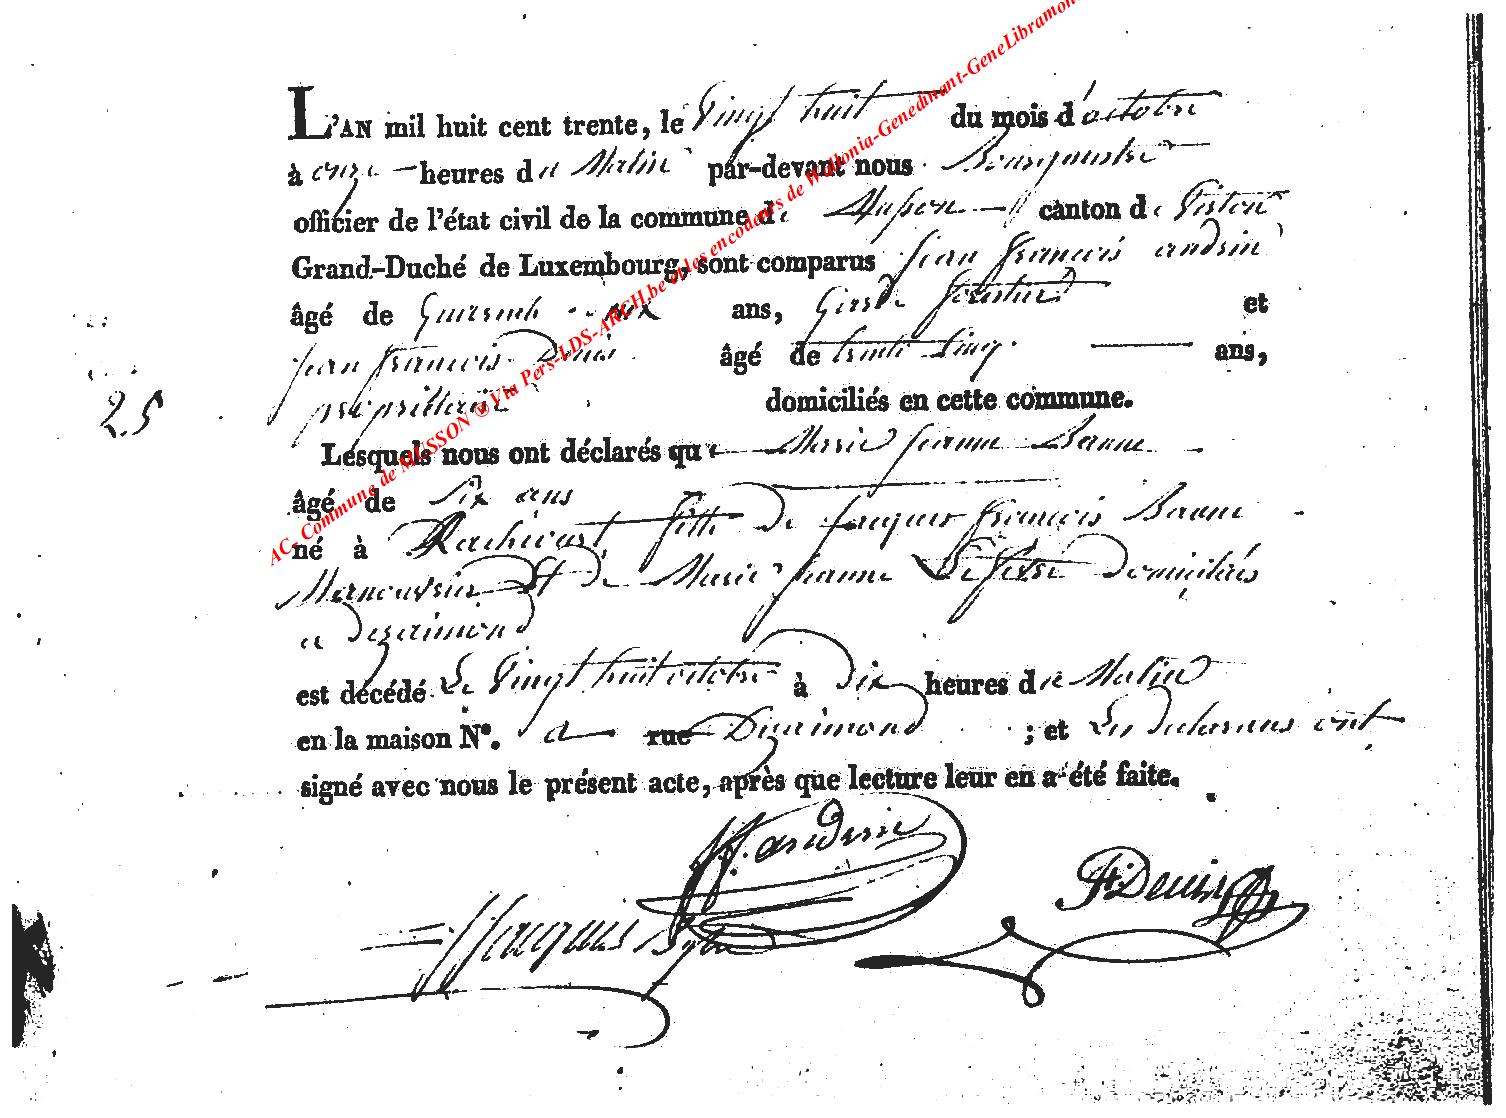 L'AN mil huit cent trente, le Vingt huit du mois d'octobre
à onze heures du Matin par-devant nous Bourgmestre
officier de l'état civil de la commune de Musson canton de Virton
Grand-Duché de Luxembourg, sont comparus Jean françois andrin
âgé de Quarante six ans, Garde forestier et
Jean françois Denis âgé de trente Cinq ans,
propriétaire domiciliés en cette commune.
25
Lesquels nous ont déclarés que Marie Jeanne Banne
âgé de Six ans
né à Rachecourt fille de Jacques françois Banne
Manouvrier Et de Marie Jeanne domiciliés
a
est décédé Le Vingt huit octobre à Dix heures du Matin
en la maison N°. a rue ; et Les declarans ont
signé avec nous le présent acte, après que lecture leur en a été faite.
JF. andrin
JF Denis
Jacques
AC- Commune de MUSSON @ Via Pers-LDS-ARCH.be et les encodeurs de Wallonia-Genedinant-GeneLibramont